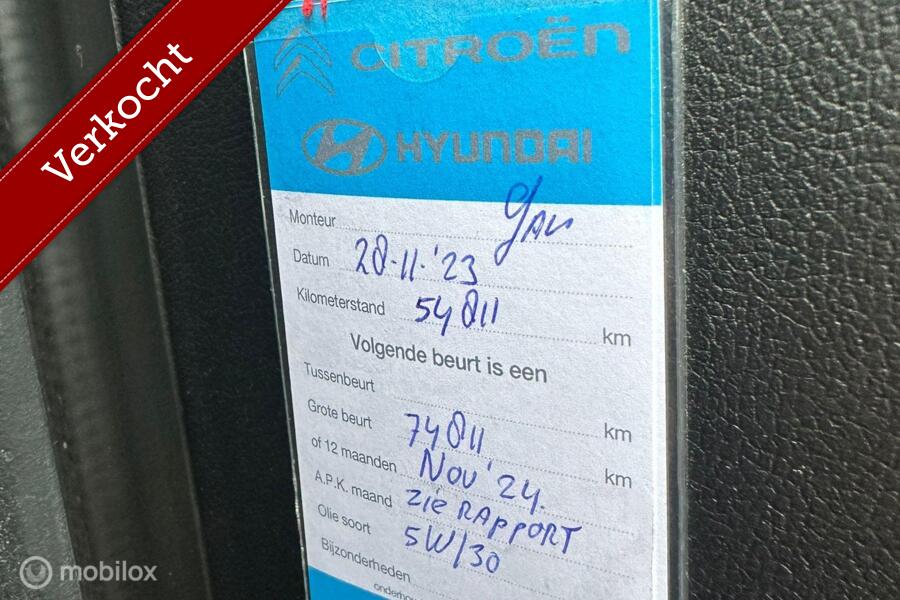 Verkocht
CITROËN
HYUNDAI
Monteur
Datum 28-11-'23
Kilometerstand 54811 km
Volgende beurt is een
Tussenbeurt km
Grote beurt 74811 km
of 12 maanden Nov '24.
A.P.K. maand ZIE RAPPORT
Olie soort 5W/30
Bijzonderheden
mobilox